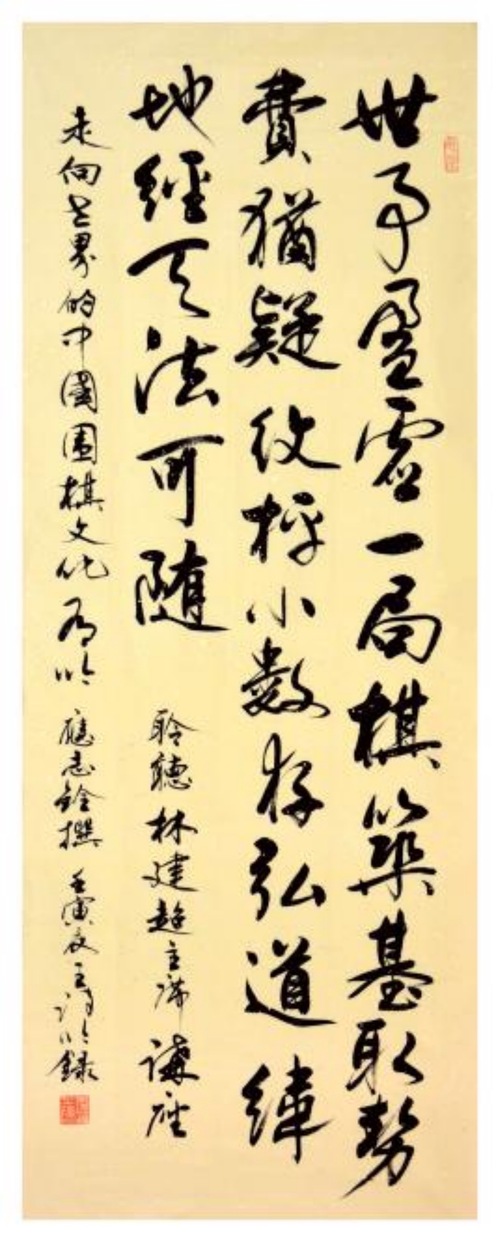 世事盈虛一局棋築基取勢
費猶疑紋枰小數存弘道緯
地經天法可隨
聆聽林建超主席講座
走向世界的中國圍棋文化有吟 應志銓撰 壬寅夏 錄